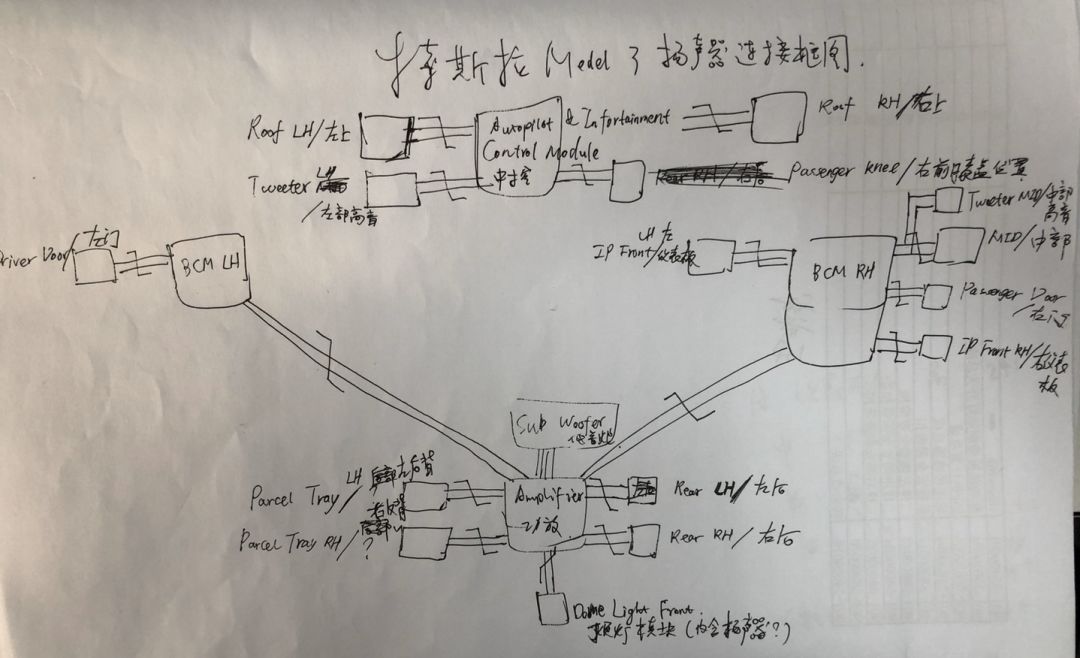 特斯拉 Model 3 扬声器连接框图.
Roof LH/左上
Autopilot & Infortainment
Control Module
中控
Roof RH/右上
Tweeter LH
/左部高音
Passenger knee/右前膝盖位置
Tweeter MID/中部
高音
MID/中部
Driver Door/左门
BCM LH
LH 左
IP Front/仪表板
BCM RH
Passenger Door
/右门
IP Front RH/右仪表
板
Sub Woofer
低音炮
Parcel Tray/LH 左后背
Amplifier
功放
Rear LH/左后
Parcel Tray RH/
?
Rear RH/右后
Dome Light Front.
顶灯模块(内含扬声器?)